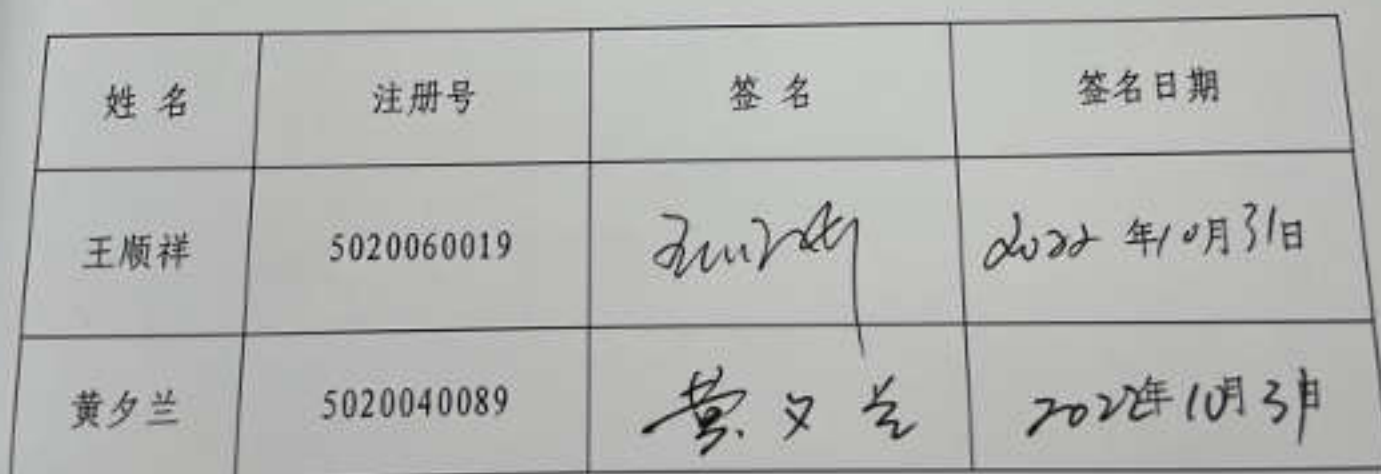 姓 名 注册号 签 名 签名日期
王顺祥 5020060019 王顺祥 2022年10月31日
黄夕兰 5020040089 黄夕兰 2022年10月31日